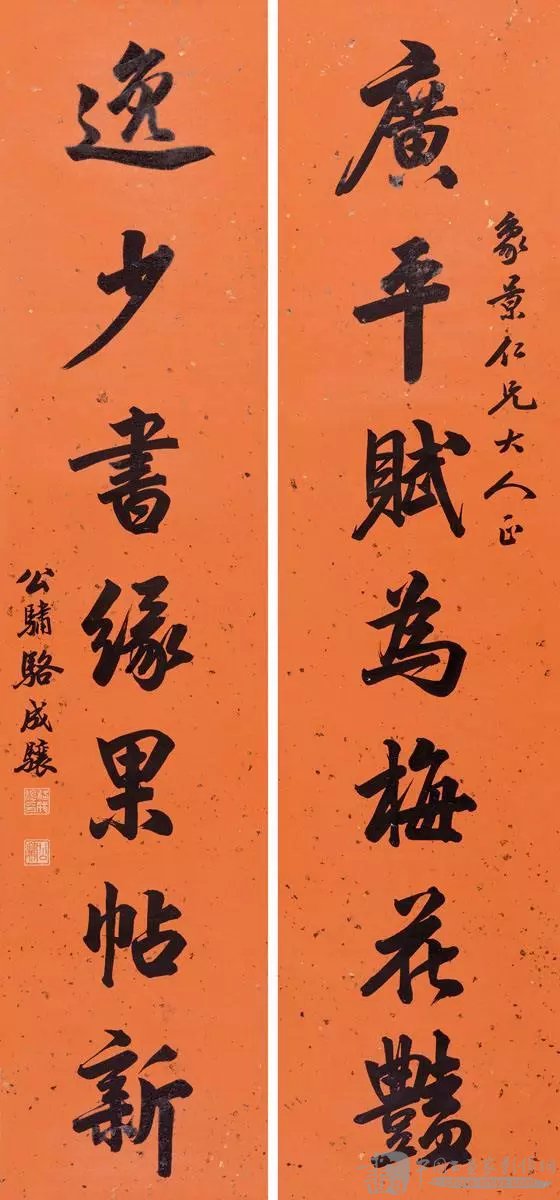 廣平賦為梅花豔
象景仁兄大人正
逸少書緣果帖新
公驌駱成驤